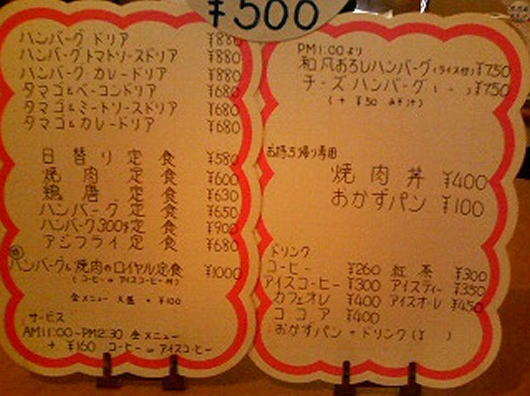 ¥500
ハンバーグドリア ¥880
ハンバーグトマトソースドリア ¥880
ハンバーグカレードリア ¥880
タマゴ&ベーコンドリア ¥680
タマゴ&ミートソースドリア ¥680
タマゴ&カレードリア ¥680
日替り定食 ¥580
焼肉定食 ¥600
鶏唐定食 ¥630
ハンバーグ定食 ¥650
ハンバーグ300g定食 ¥900
アジフライ定食 ¥680
ハンバーグ&焼肉のロイヤル定食 ¥1000
(コーヒーorアイスコーヒー付)
全メニュー 大盛 + ¥100
サービス
AM11:00-PM2:30 全メニュー
+ ¥160 コーヒーorアイスコーヒー
PM1:00より
和風おろしハンバーグ(ライス付) ¥750
チーズハンバーグ( 〃 ) ¥750
(+ ¥50 みそ汁)
お持ち帰り専用
焼肉丼 ¥400
おかずパン ¥100
ドリンク
コーヒー ¥260 紅茶 ¥300
アイスコーヒー ¥300 アイスティー ¥350
カフェオレ ¥400 アイスオーレ ¥450
ココア ¥400
おかずパン + ドリンク(¥ )